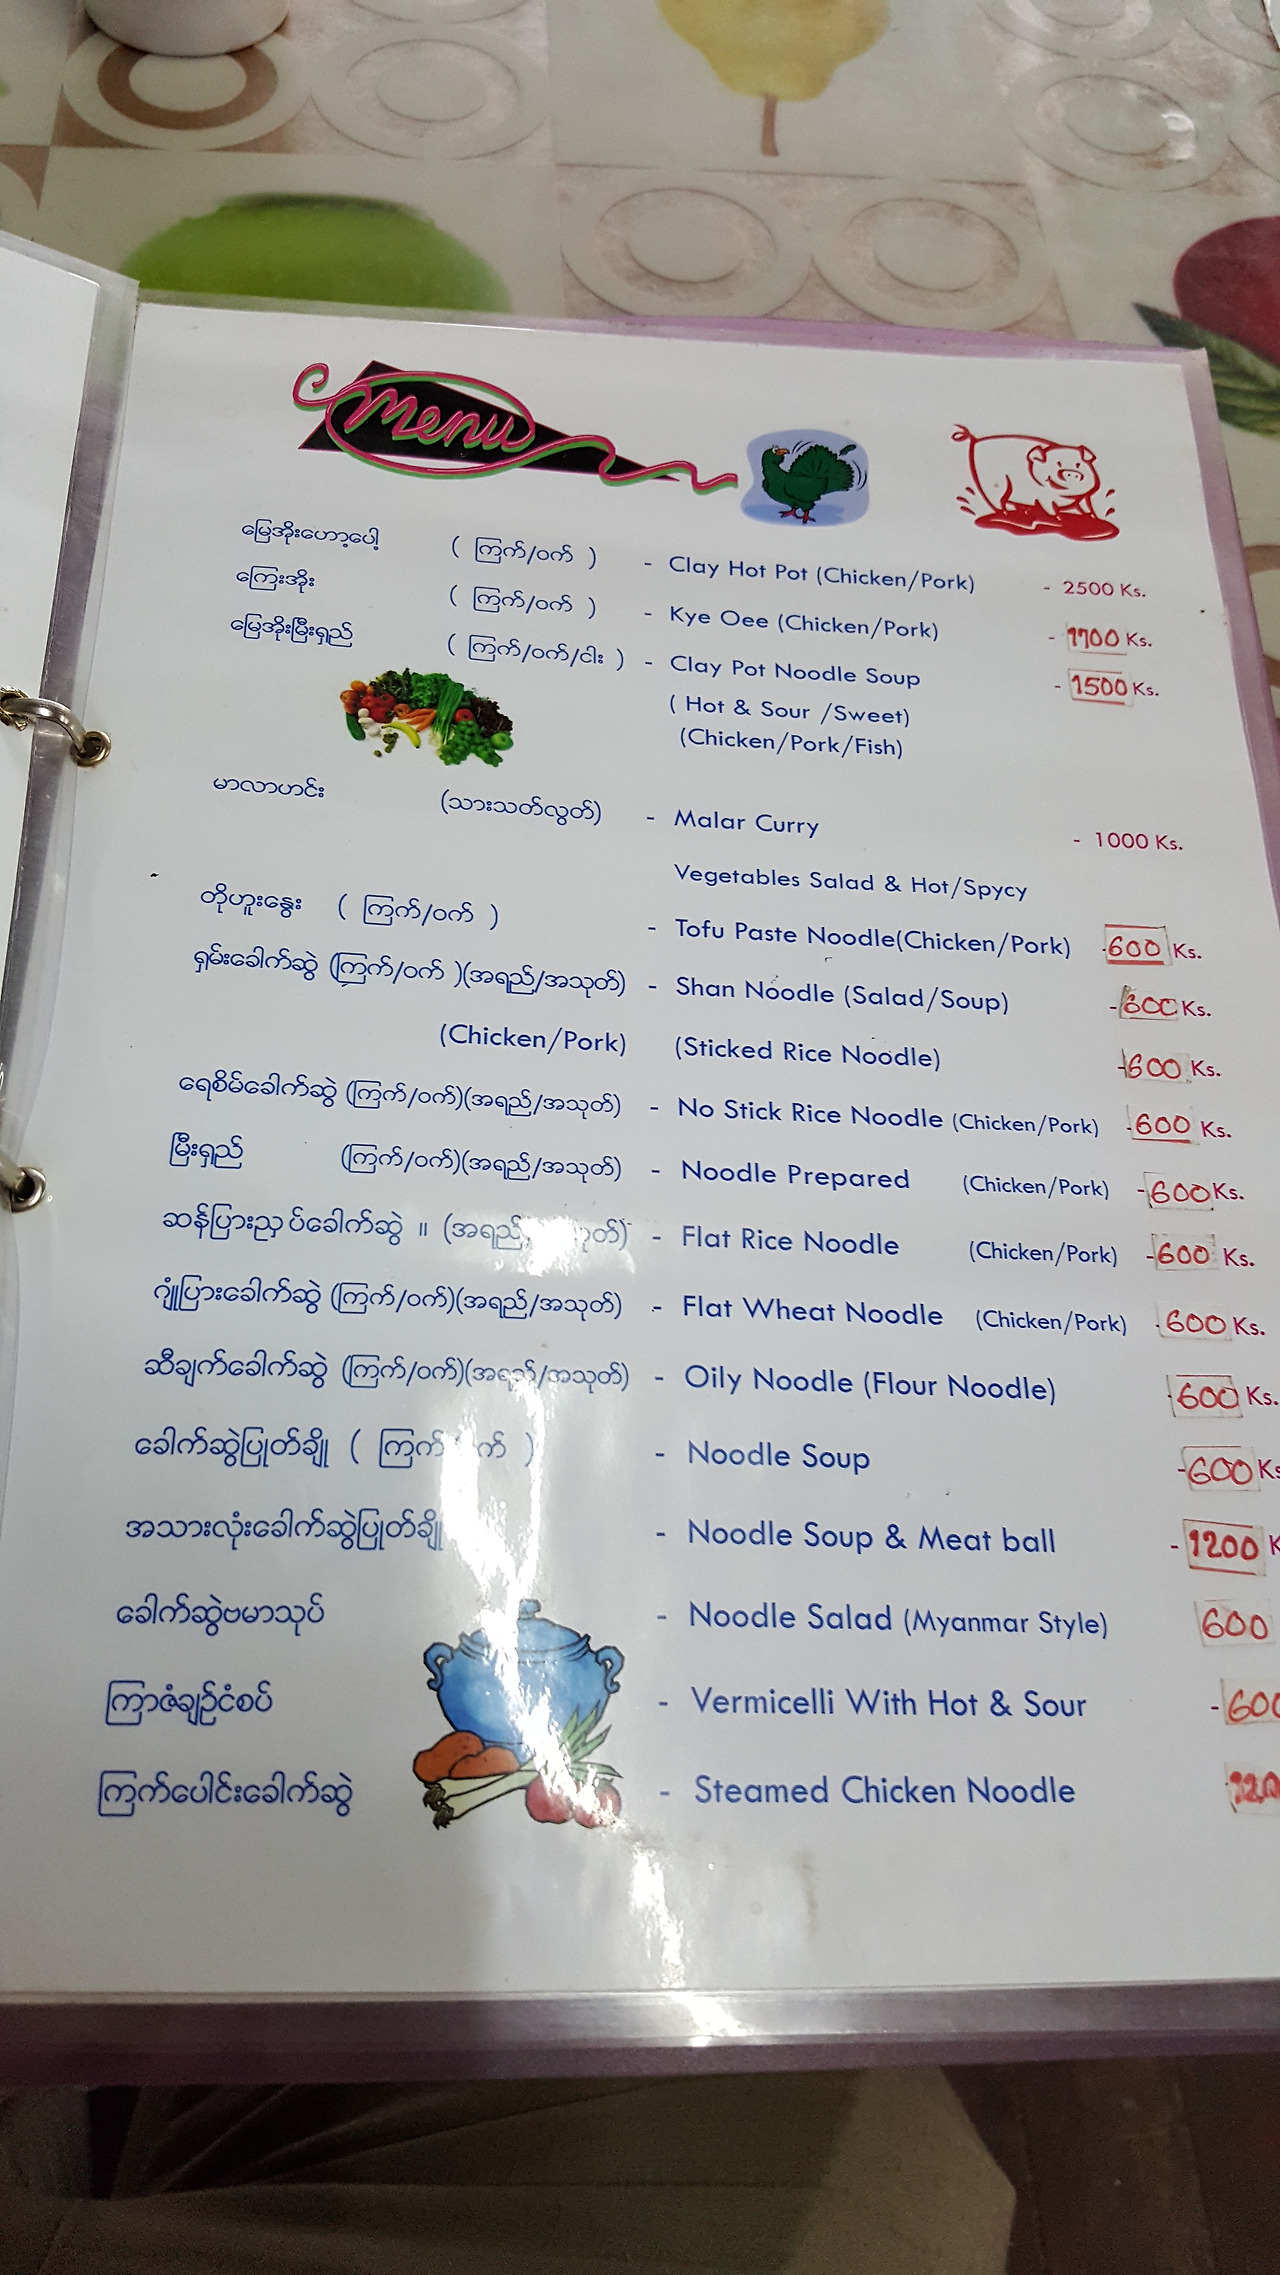 Menu
မြေအိုးဟော့ပေါ့ ( ကြက်/ဝက် ) - Clay Hot Pot (Chicken/Pork) - 2500 Ks.
ကြေးအိုး ( ကြက်/ဝက် ) - Kye Oee (Chicken/Pork) - 1700 Ks.
မြေအိုးမြီးရှည် ( ကြက်/ဝက်/ငါး ) - Clay Pot Noodle Soup - 1500 Ks.
( Hot & Sour /Sweet)
(Chicken/Pork/Fish)
မာလာဟင်း (သားသတ်လွတ်) - Malar Curry - 1000 Ks.
Vegetables Salad & Hot/Spycy
တိုဟူးနွေး ( ကြက်/ဝက် ) - Tofu Paste Noodle(Chicken/Pork) -600 Ks.
ရှမ်းခေါက်ဆွဲ (ကြက်/ဝက် )(အရည်/အသုတ်) - Shan Noodle (Salad/Soup) -600 Ks.
(Chicken/Pork) (Sticked Rice Noodle) -600 Ks.
ရေစိမ်ခေါက်ဆွဲ (ကြက်/ဝက်)(အရည်/အသုတ်) - No Stick Rice Noodle (Chicken/Pork) -600 Ks.
မြီးရှည် (ကြက်/ဝက်)(အရည်/အသုတ်) - Noodle Prepared (Chicken/Pork) -600 Ks.
ဆန်ပြားညှပ်ခေါက်ဆွဲ ။ (အရည် - Flat Rice Noodle (Chicken/Pork) -600 Ks.
ဂျုံပြားခေါက်ဆွဲ (ကြက်/ဝက်)(အရည်/အသုတ်) - Flat Wheat Noodle (Chicken/Pork) -600 Ks.
ဆီချက်ခေါက်ဆွဲ (ကြက်/ဝက်)(အရည်/အသုတ်) - Oily Noodle (Flour Noodle) -600 Ks.
ခေါက်ဆွဲပြုတ်ချို ( ကြက် ) - Noodle Soup -600 Ks
အသားလုံးခေါက်ဆွဲပြုတ်ချို - Noodle Soup & Meat ball - 1200 K
ခေါက်ဆွဲဗမာသုပ် - Noodle Salad (Myanmar Style) 600
ကြာဇံချဉ်ငံစပ် - Vermicelli With Hot & Sour -600
ကြက်ပေါင်းခေါက်ဆွဲ - Steamed Chicken Noodle